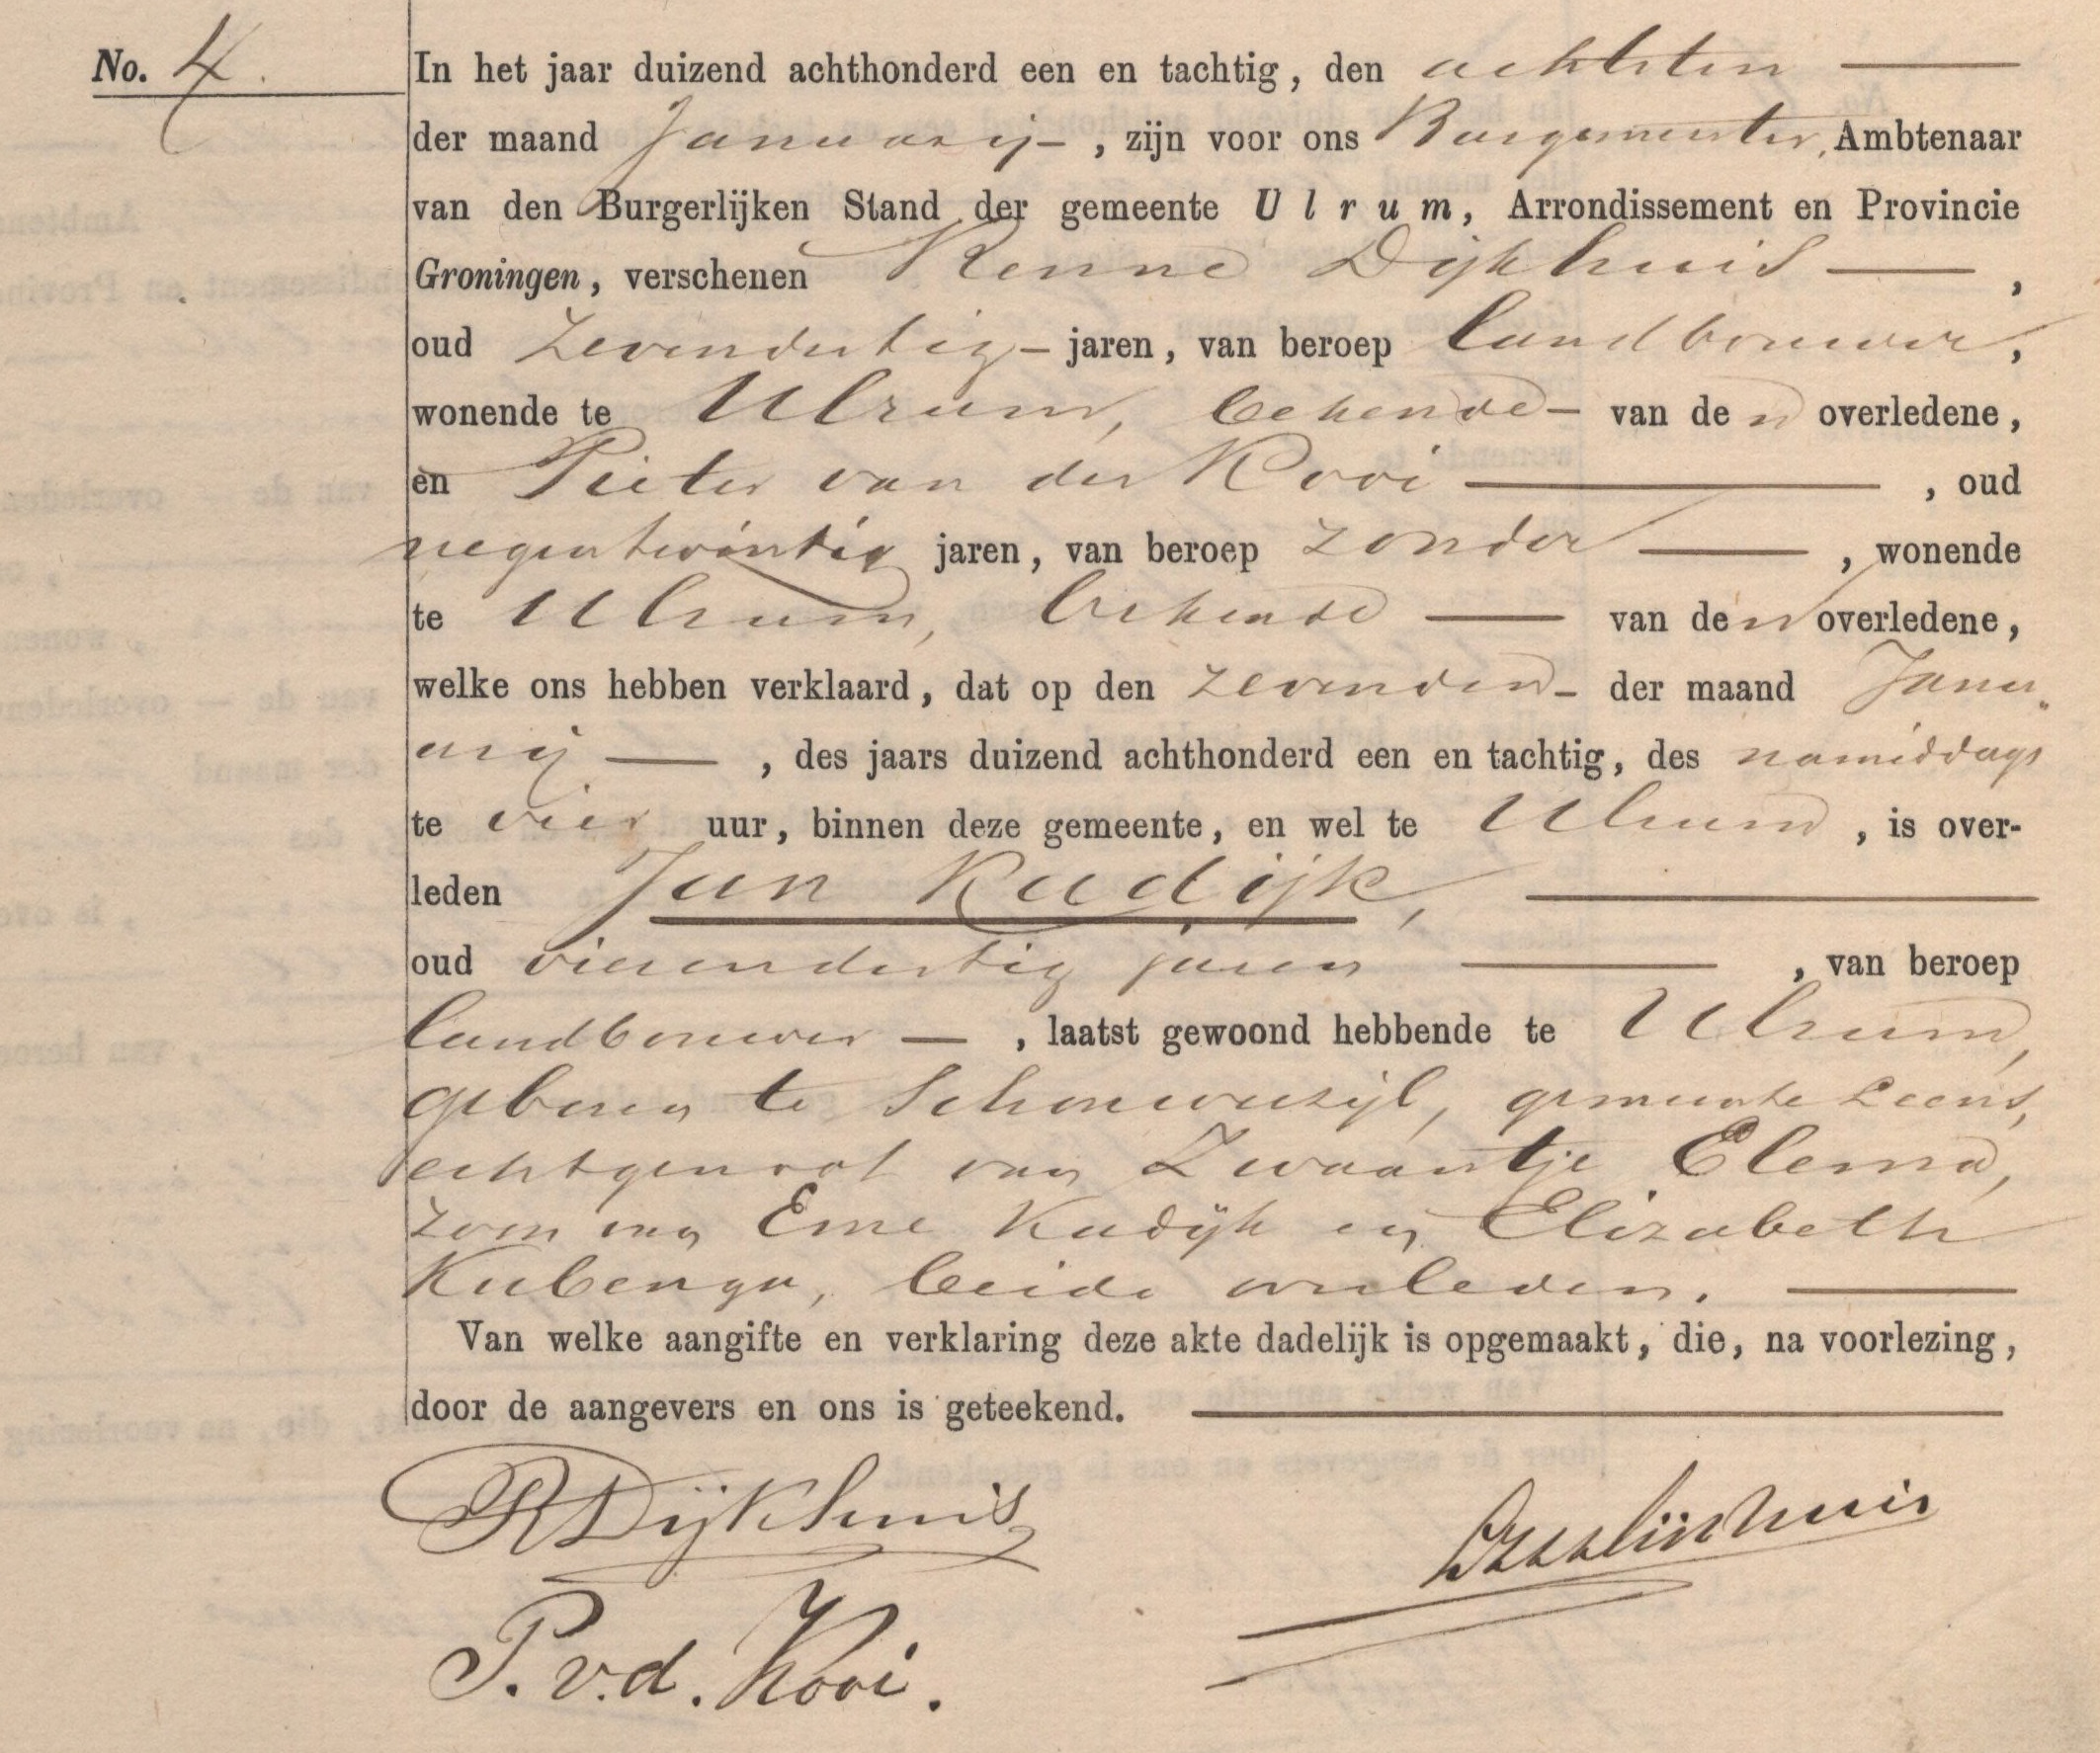 No. 4.
In het jaar duizend achthonderd een en tachtig, den achtsten
der maand Januarij, zijn voor ons Burgemeester, Ambtenaar
van den Burgerlijken Stand der gemeente Ulrum, Arrondissement en Provincie
Groningen, verschenen Renne Dijkhuis,
oud zevendertig jaren, van beroep landbouwer,
wonende te Ulrum, bekende van den overledene,
en Pieter van der Kooi, oud
negentwintig jaren, van beroep zonder, wonende
te Ulrum, bekende van den overledene,
welke ons hebben verklaard, dat op den zevenden der maand Janu„
arij, des jaars duizend achthonderd een en tachtig, des namiddags
te vier uur, binnen deze gemeente, en wel te Ulrum, is over-
leden Jan Kadijk,
oud vierendertig jaren, van beroep
landbouwer, laatst gewoond hebbende te Ulrum,
geboren te Schouwerzijl, gemeente Leens,
echtgenoot van Zwaantje Elema,
zoon van Eme Kadijk en Elizabeth
Kubenga, beide overleden.
Van welke aangifte en verklaring deze akte dadelijk is opgemaakt, die, na voorlezing,
door de aangevers en ons is geteekend.
R Dijkhuis
P. v.d. Kooi.